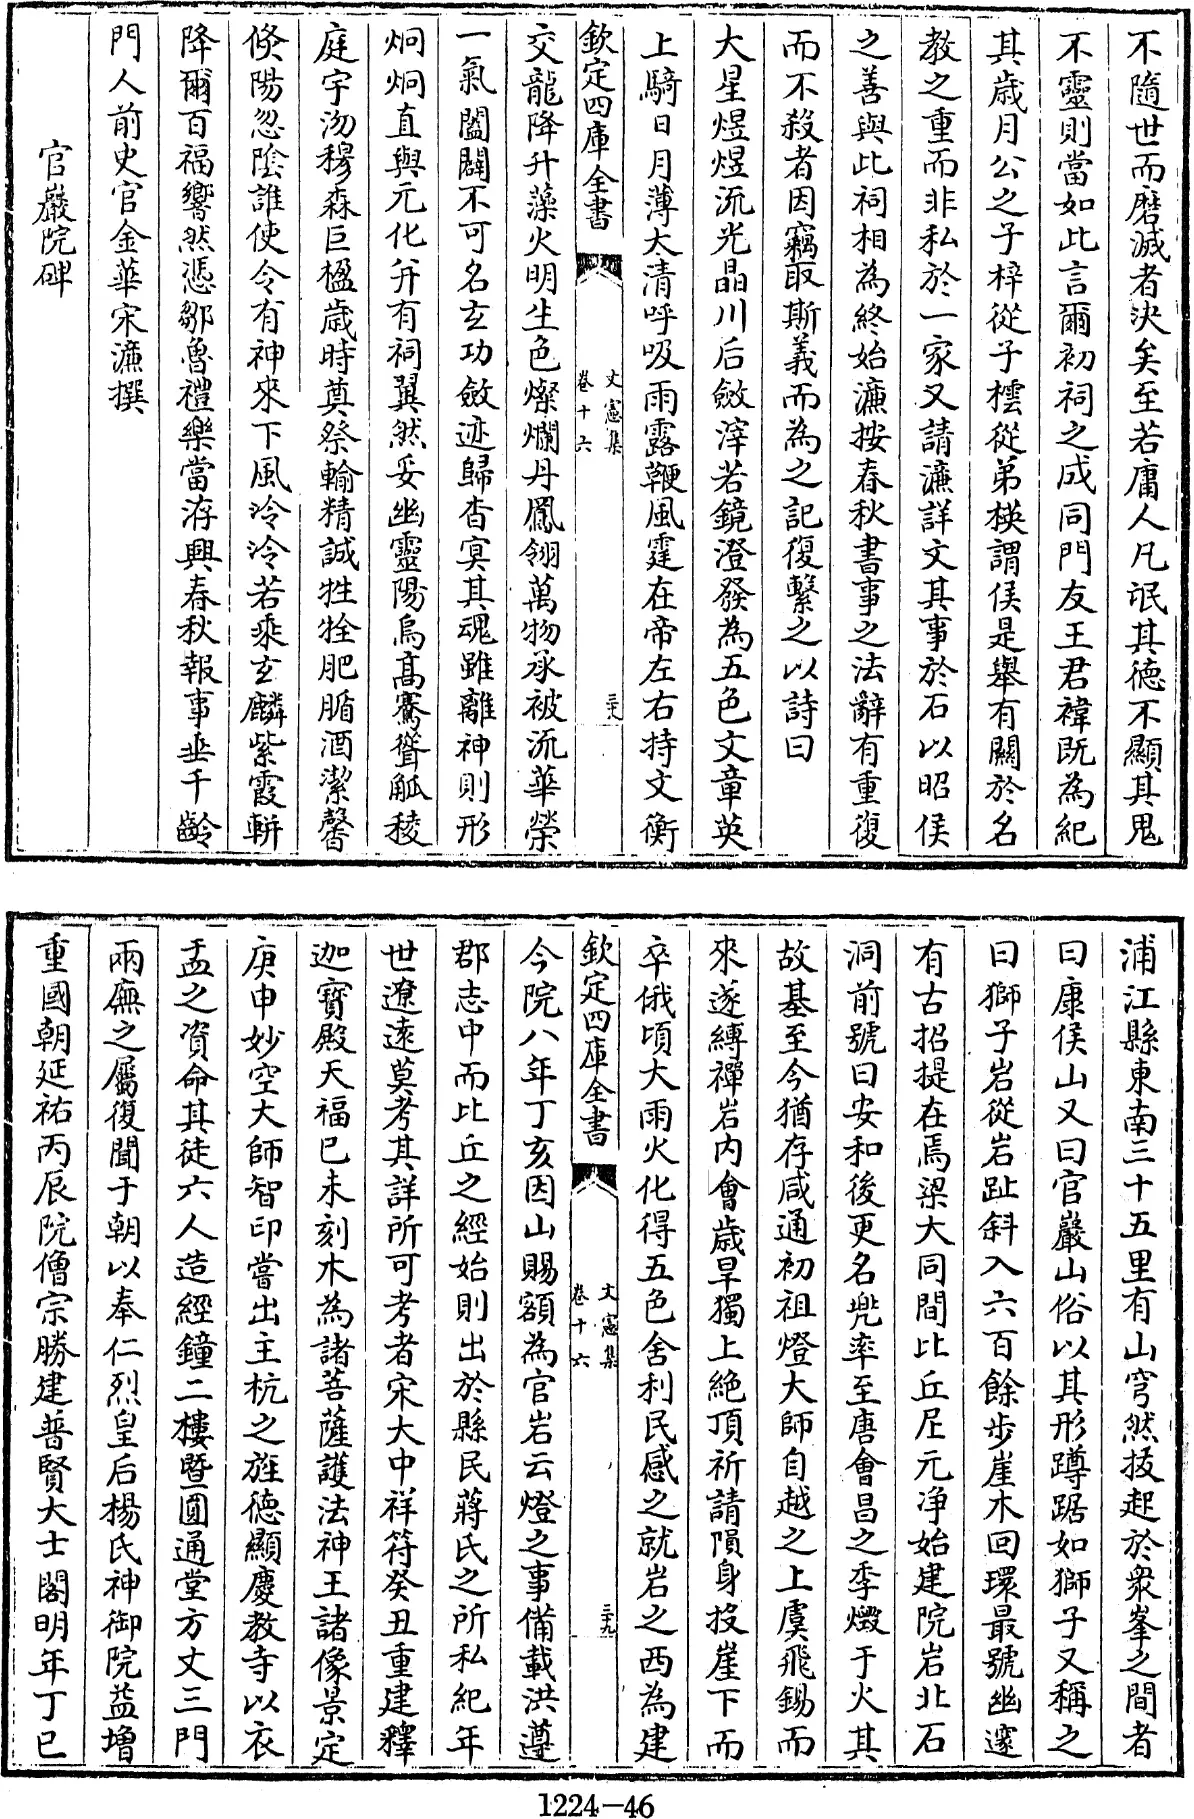 不隨世而磨滅者決矣至若庸人凡氓其徳不顯其鬼
不靈則當如此言爾初祠之成同門友王君褘既為紀
其歳月公之子梓從子橒從弟模謂侯是舉有闗於名
教之重而非私於一家又請濂詳文其事於石以昭侯
之善與此祠相為終始濂按春秋書事之法辭有重復
而不殺者因竊取斯義而為之記復繫之以詩曰
大星煜煜流光晶川后斂滓若鏡澄發為五色文章英
上騎日月薄太清呼吸雨露鞭風霆在帝左右持文衡
欽定四庫全書
文憲集
卷十六
三十八
交龍降升藻火明生色燦爛丹鳳翎萬物承被流華榮
一氣闔闢不可名玄功斂迹歸杳冥其魂雖離神則形
炯炯直與元化并有祠翼然妥幽靈陽烏髙騫聳觚稜
庭宇沕穆森巨楹歳時奠祭輸精誠牲牷肥腯酒潔馨
倏陽忽陰誰使令有神來下風泠泠若乘玄麟紫霞軿
降爾百福響然憑鄒魯禮樂當洊興春秋報事垂千齡
門人前史官金華宋濂撰
官巖院碑
浦江縣東南三十五里有山穹然拔起於衆峯之間者
曰康侯山又曰官巖山俗以其形蹲踞如獅子又稱之
曰獅子岩從岩趾斜入六百餘步崖木回環最號幽邃
有古招提在焉梁大同間比丘尼元浄始建院岩北石
洞前號曰安和後更名兜率至唐會昌之季燬于火其
故基至今猶存咸通初祖燈大師自越之上虞飛錫而
來遂縛禪岩内㑹歳旱獨上絶頂祈請隕身投崖下而
卒俄頃大雨火化得五色舍利民感之就岩之西為建
欽定四庫全書
文憲集
卷十六
三十九
今院八年丁亥因山賜額為官岩云燈之事備載洪遵
郡志中而比丘之經始則出於縣民蔣氏之所私紀年
世遼遠莫考其詳所可考者宋大中祥符癸丑重建釋
迦寳殿天福已未刻木為諸菩薩護法神王諸像景定
庚申妙空大師智印嘗出主杭之旌徳顯慶教寺以衣
盂之資命其徒六人造經鐘二樓暨圓通堂方丈三門
兩廡之屬復聞于朝以奉仁烈皇后楊氏神御院益增
重國朝延祐丙辰院僧宗勝建普賢大士閣明年丁巳
1224-46